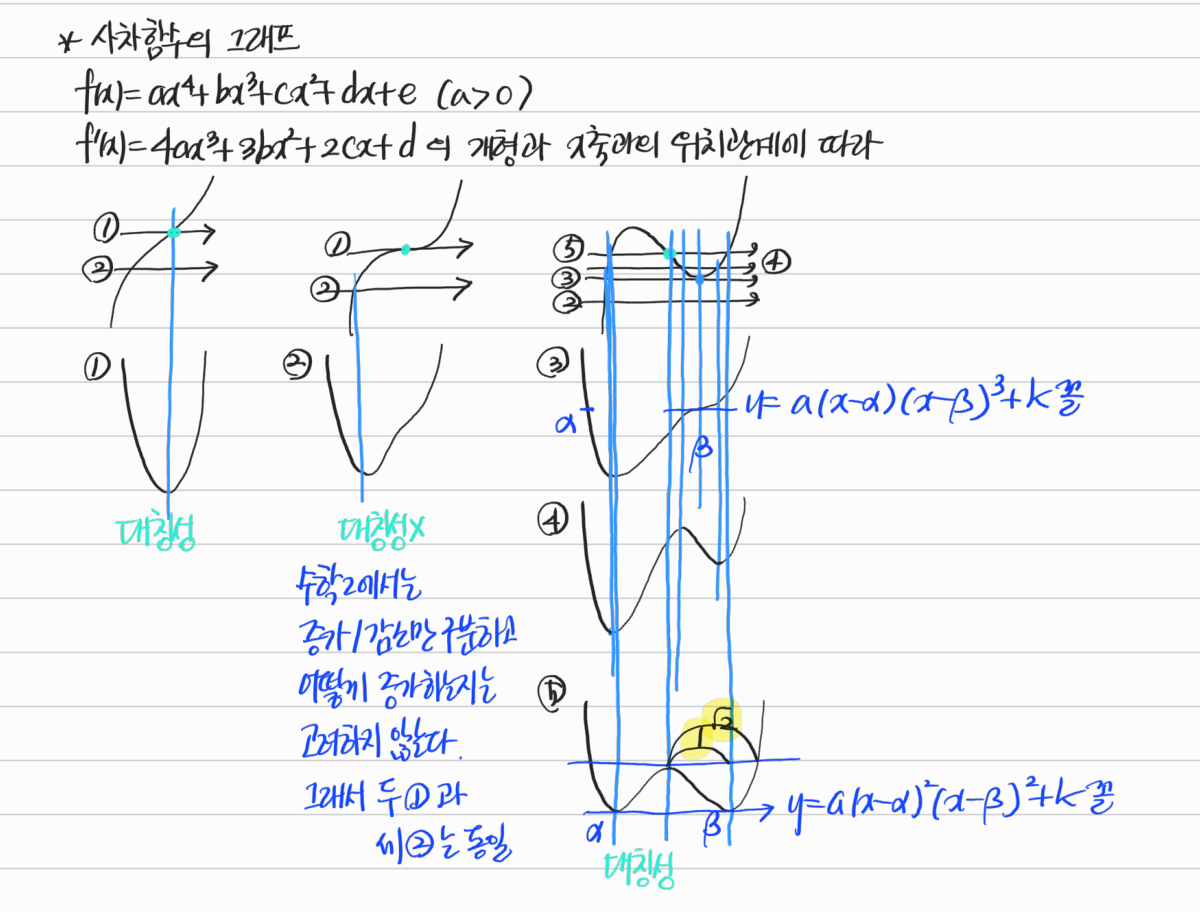 * 사차함수의 그래프
f(x)=ax⁴+bx³+cx²+dx+e (a>0)
f'(x)=4ax³+3bx²+2cx+d 의 개형과 x축과의 위치관계에 따라
①
②
①
②
⑤
④
③
②
①
②
③
α
β
y=a(x-α)(x-β)³+k 꼴
대칭성
대칭성x
④
수학2에서는
증가/감소만 구분하고
어떻게 증가하는지는
고려하지 않는다.
그래서 두 ①과
세 ②는 동일
⑤
1
√2
α
β
y=a(x-α)²(x-β)²+k 꼴
대칭성